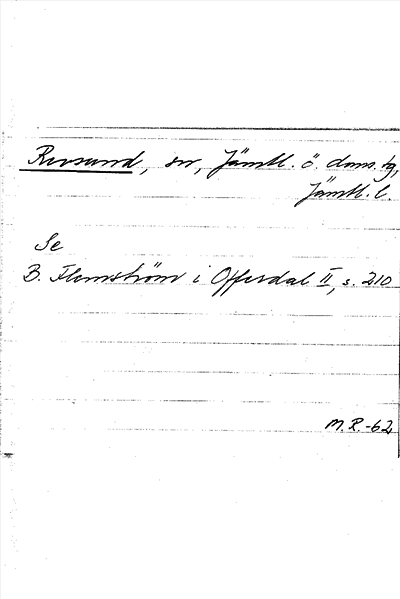 Revsund, sn, Jämtl. ö. doms. tg,
Jämtl. l.
Se
B. Flemström i Offerdal II, s. 210
M. R. -62